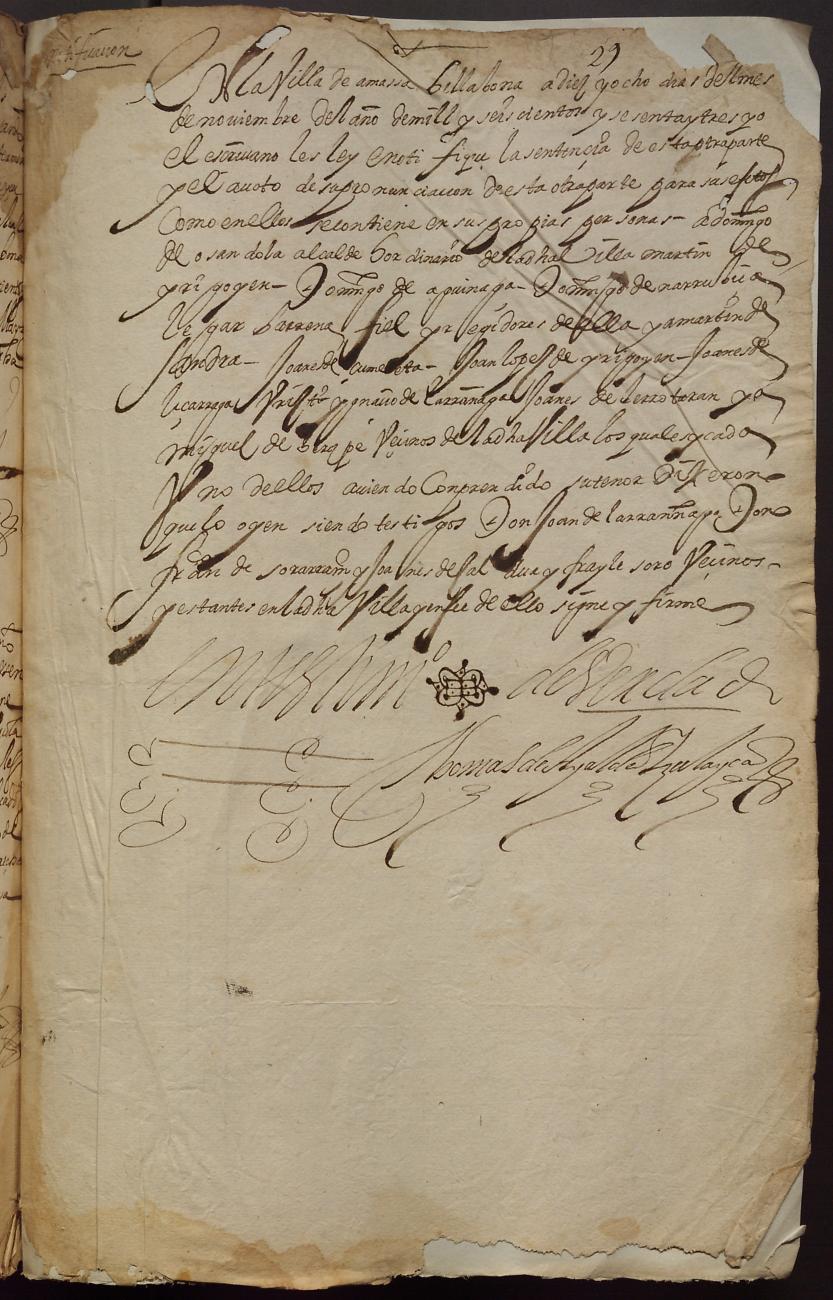 29
En la Villa de amassa billabona a diez y ocho dias del mes
de noviembre del año de mill y seis cientos y sesenta y tres yo
el escriuano les ley e notifique la sentencia de esta otra parte
y el auto de su pronunciacion de esta otra parte para sus efetos
Como en ellos se contiene en sus propias personas a domingo
de osandola alcalde hordinario de la dha Villa martin de
yrigoyen - Domingo de apinaga - Domingo de narrubia
barrena fiel y regidores de ella y a martin de
Joan lopez de yrigoyen - Joanes de
ygnacio de larrañaga Joanes de berrotaran y a
miguel de Vecinos de la dha Villa los quales y cada
Vno de ellos auiendo Comprendido su tenor Dixeron
que lo oyen siendo testigos Don Joan de larrañaga Don
fran de y Joanes de y frayle soro Vecinos
y estantes en la dha Villa y en fee de ello signe y firme
En testimº de Verdad
Thomas de